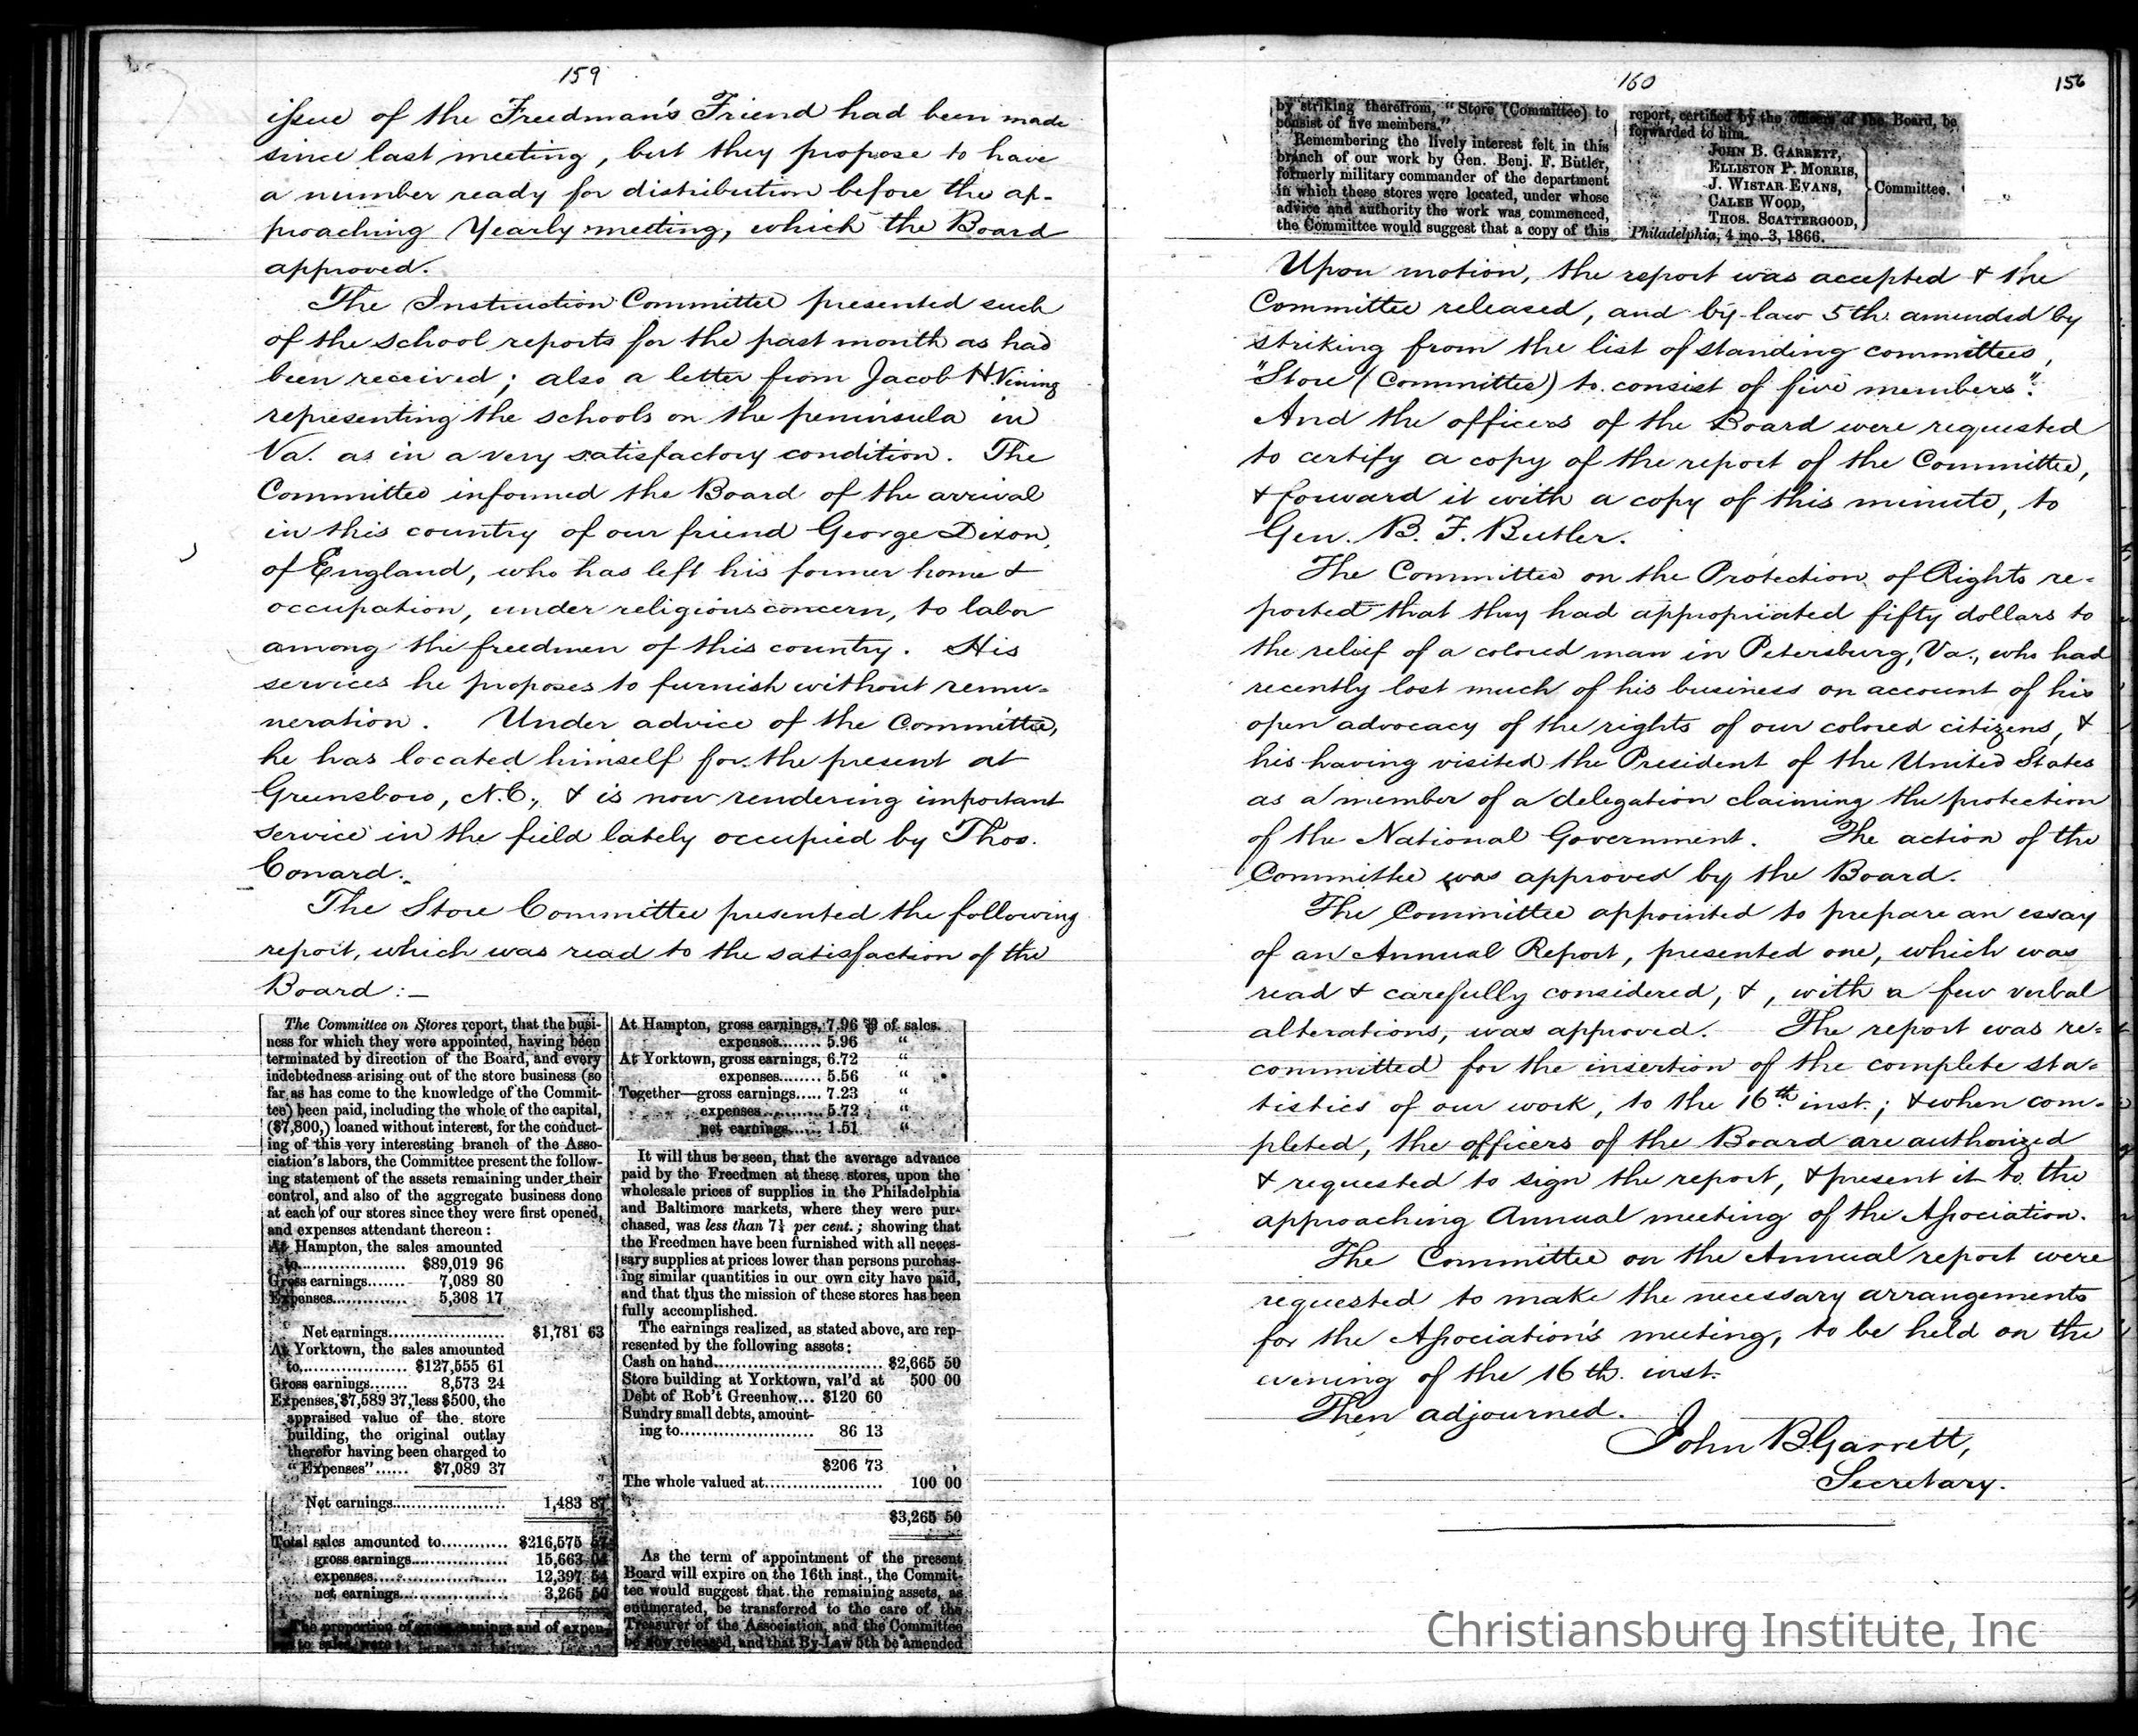 159
issue of the Freedman's Friend had been made
since last meeting, but they propose to have
a number ready for distribution before the ap-
proaching Yearly meeting, which the Board
approved.
The Instruction Committee presented such
of the school reports for the past month as had
been received; also a letter from Jacob H. Vining
representing the schools on the peninsula in
Va. as in a very satisfactory condition. The
Committee informed the Board of the arrival
in this country of our friend George Dixon,
of England, who has left his former home &
occupation, under religious concern, to labor
among the freedmen of this country. His
services he proposes to furnish without remu-
neration. Under advice of the Committee,
he has located himself for the present at
Greensboro, N.C., & is now rendering important
service in the field lately occupied by Thos.
Conard.
The Store Committee presented the following
report, which was read to the satisfaction of the
Board:—
The Committee on Stores report, that the busi-
ness for which they were appointed, having been
terminated by direction of the Board, and every
indebtedness arising out of the store business (so
far as has come to the knowledge of the Commit-
tee) been paid, including the whole of the capital,
($7,800,) loaned without interest, for the conduct-
ing of this very interesting branch of the Asso-
ciation's labors, the Committee present the follow-
ing statement of the assets remaining under their
control, and also of the aggregate business done
at each of our stores since they were first opened,
and expenses attendant thereon:
At Hampton, the sales amounted
to.................... $89,019 96
Gross earnings....... 7,089 80
Expenses.............. 5,308 17
Net earnings...................... $1,781 63
At Yorktown, the sales amounted
to.................... $127,555 61
Gross earnings....... 8,573 24
Expenses, $7,589 37, less $500, the
appraised value of the store
building, the original outlay
therefor having been charged to
"Expenses"...... $7,089 37
Net earnings..................... 1,483 87
Total sales amounted to............ $216,575 57
gross earnings................. 15,663 04
expenses........................ 12,397 54
net earnings................... 3,265 50
The proportion of gross earnings and of expen-
ses to sales, were
At Hampton, gross earnings, 7.96 ⅌ of sales.
expenses........ 5.96 "
At Yorktown, gross earnings, 6.72 "
expenses........ 5.56 "
Together—gross earnings..... 7.23 "
expenses............ 5.72 "
net earnings...... 1.51 "
It will thus be seen, that the average advance
paid by the Freedmen at these stores, upon the
wholesale prices of supplies in the Philadelphia
and Baltimore markets, where they were pur-
chased, was less than 7¼ per cent.; showing that
the Freedmen have been furnished with all neces-
sary supplies at prices lower than persons purchas-
ing similar quantities in our own city have paid,
and that thus the mission of these stores has been
fully accomplished.
The earnings realized, as stated above, are rep-
resented by the following assets:
Cash on hand.............................. $2,665 50
Store building at Yorktown, val'd at 500 00
Debt of Rob't Greenhow... $120 60
Sundry small debts, amount-
ing to........................ 86 13
$206 73
The whole valued at..................... 100 00
$3,265 50
As the term of appointment of the present
Board will expire on the 16th inst., the Commit-
tee would suggest that the remaining assets, as
enumerated, be transferred to the care of the
Treasurer of the Association, and the Committee
be now released, and that By-Law 5th be amended
160
156
by striking therefrom, "Store (Committee) to
consist of five members."
Remembering the lively interest felt in this
branch of our work by Gen. Benj. F. Butler,
formerly military commander of the department
in which these stores were located, under whose
advice and authority the work was commenced,
the Committee would suggest that a copy of this
report, certified by the officers of the Board, be
forwarded to him.
JOHN B. GARRETT,
ELLISTON P. MORRIS,
J. WISTAR EVANS,
CALEB WOOD,
THOS. SCATTERGOOD,
Committee.
Philadelphia, 4 mo. 3, 1866.
Upon motion, the report was accepted & the
Committee released, and by-law 5th amended by
striking from the list of standing committees,
"Store (Committee) to consist of five members".
And the officers of the Board were requested
to certify a copy of the report of the Committee,
& forward it with a copy of this minute, to
Gen. B. F. Butler.
The Committee on the Protection of Rights re-
ported that they had appropriated fifty dollars to
the relief of a colored man in Petersburg, Va., who had
recently lost much of his business on account of his
open advocacy of the rights of our colored citizens, &
his having visited the President of the United States
as a member of a delegation claiming the protection
of the National Government. The action of the
Committee was approved by the Board.
The Committee appointed to prepare an essay
of an Annual Report, presented one, which was
read & carefully considered, &, with a few verbal
alterations, was approved. The report was re-
committed for the insertion of the complete sta-
tistics of our work, to the 16th inst.; & when com-
pleted, the officers of the Board are authorized
& requested to sign the report, & present it to the
approaching Annual meeting of the Association.
The Committee on the Annual report were
requested to make the necessary arrangements
for the Association's meeting, to be held on the
evening of the 16th inst.
Then adjourned.
John B. Garrett,
Secretary.
Christiansburg Institute, Inc